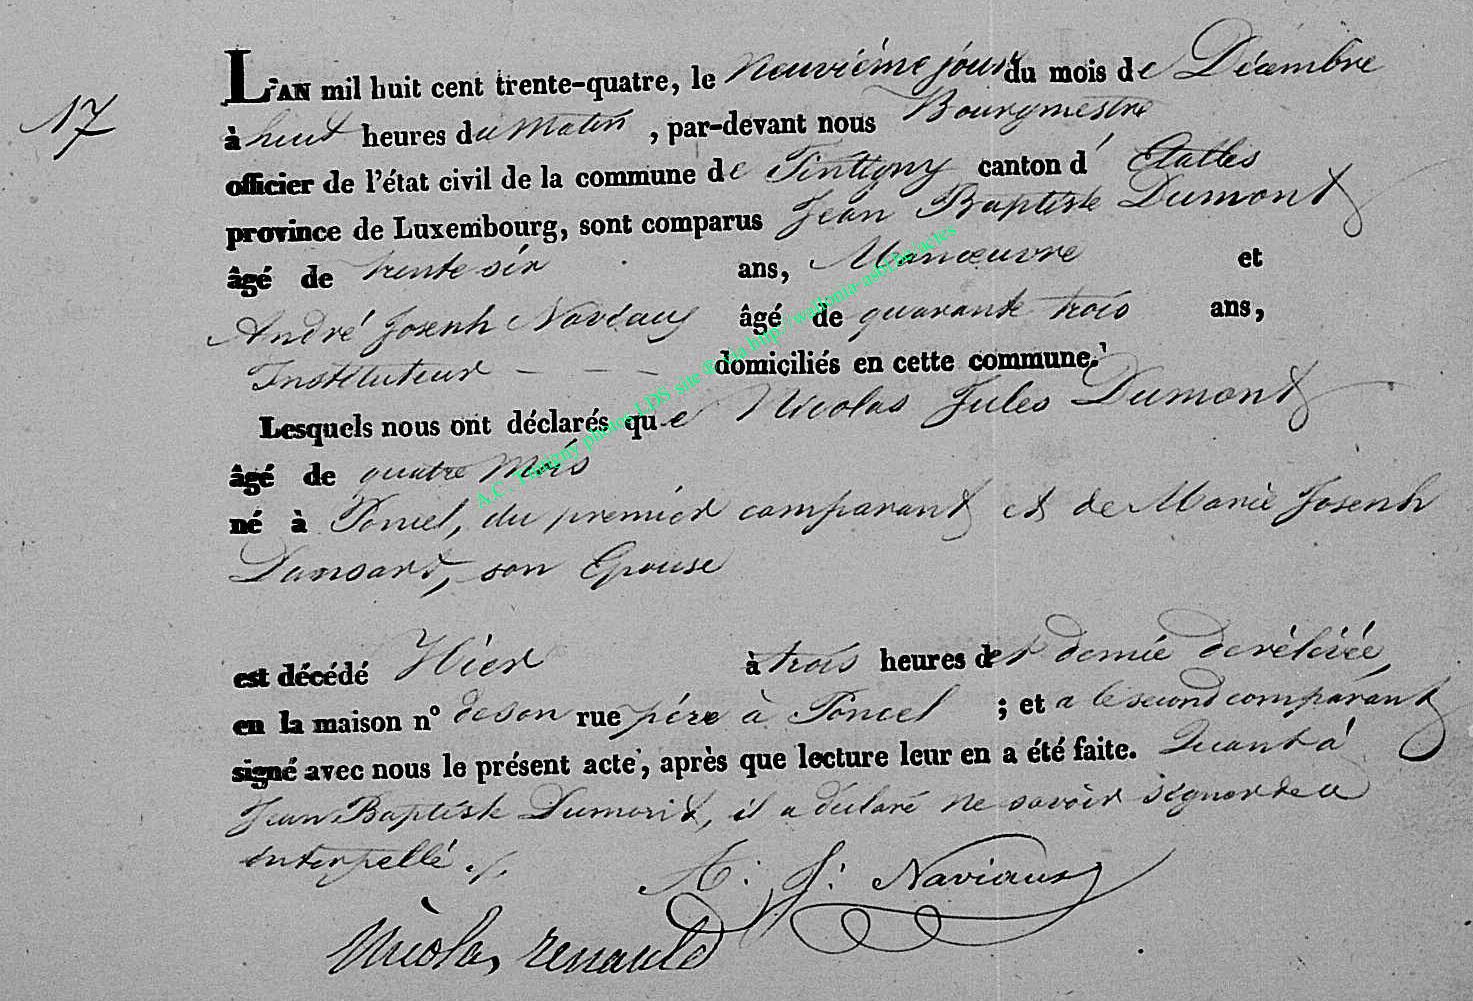 L'AN mil huit cent trente-quatre, le neuviéme jour du mois de Décembre
17
à huit heures du Matin, par-devant nous Bourgmestre
officier de l'état civil de la commune de Tintigny canton d' Etalles
province de Luxembourg, sont comparus Jean Baptiste Dumont
âgé de trente six ans, Manœuvre et
André Joseph Naviaux âgé de quarante trois ans,
Instituteur - - - domiciliés en cette commune.
Lesquels nous ont déclarés que Nicolas Jules Dumont
âgé de quatre Mois
né à Poncel, du premier comparant et de Marie Joseph
Dansart, son Epouse
est décédé Hier à trois heures et demie de rélévée,
en la maison n° de son rue père à Poncel ; et a le second comparant
signé avec nous le présent acte, après que lecture leur en a été faite. Quant à
Jean Baptiste Dumont, il a déclaré ne savoir signer de ce
interpellé ./.
A. J. Naviaux
Nicolas renauld
A.C. Tintigny photos LDS site @ via http://wallonia-asbl.be/actes